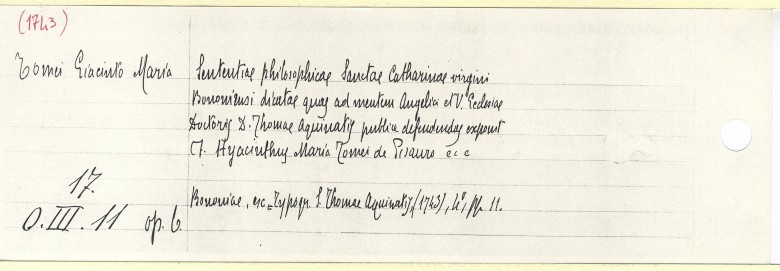 (1743)
Tomei Giacinto Maria
Sententiae philosophicae Sanctae Catharinae virgini
Bononiensi dicatae quas ad mentem Angelici et V. Ecclesiae
Doctoris D. Thomae Aquinatis publice defendendas exponit
F. Hyacinthus Maria Tomei de Pisauro ecc
Bononiae, ex Typogr. S. Thomae Aquinatis, (1743), 4°, pp. 11.
17.
O.III.11 op. 6.